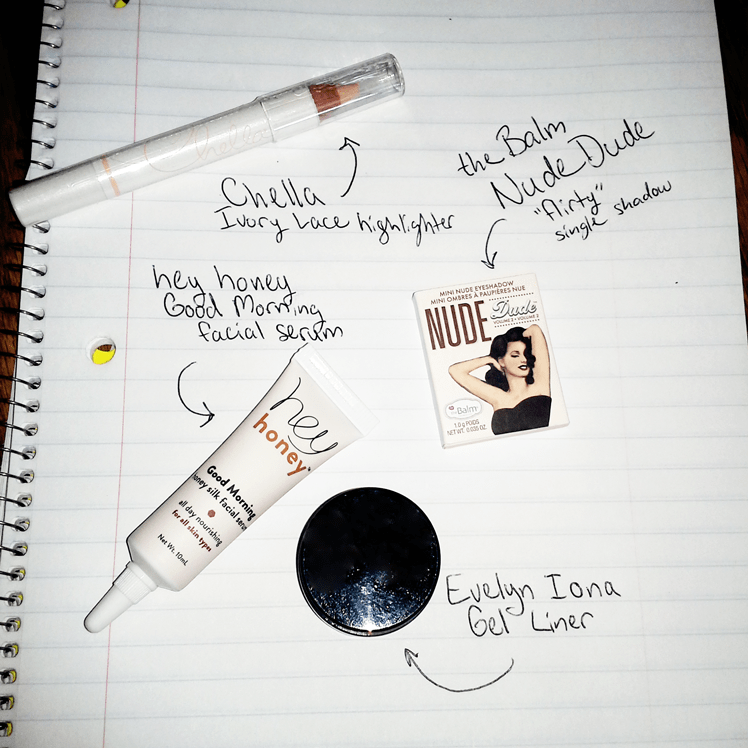 Chella
Chella
Ivory Lace highlighter
the Balm
Nude Dude
"flirty"
single shadow
hey honey
Good Morning
facial serum
MINI NUDE EYESHADOW
MINI OMBRES À PAUPIÈRES NUE
NUDE Dude
VOLUME 2 • VOLUME 2
theBalm
1.0 g POIDS
NET WT. 0.035 OZ.
hey
honey
Good Morning
honey silk facial serum
all day nourishing
for all skin types
Net Wt. 10mL
Evelyn Iona
Gel Liner